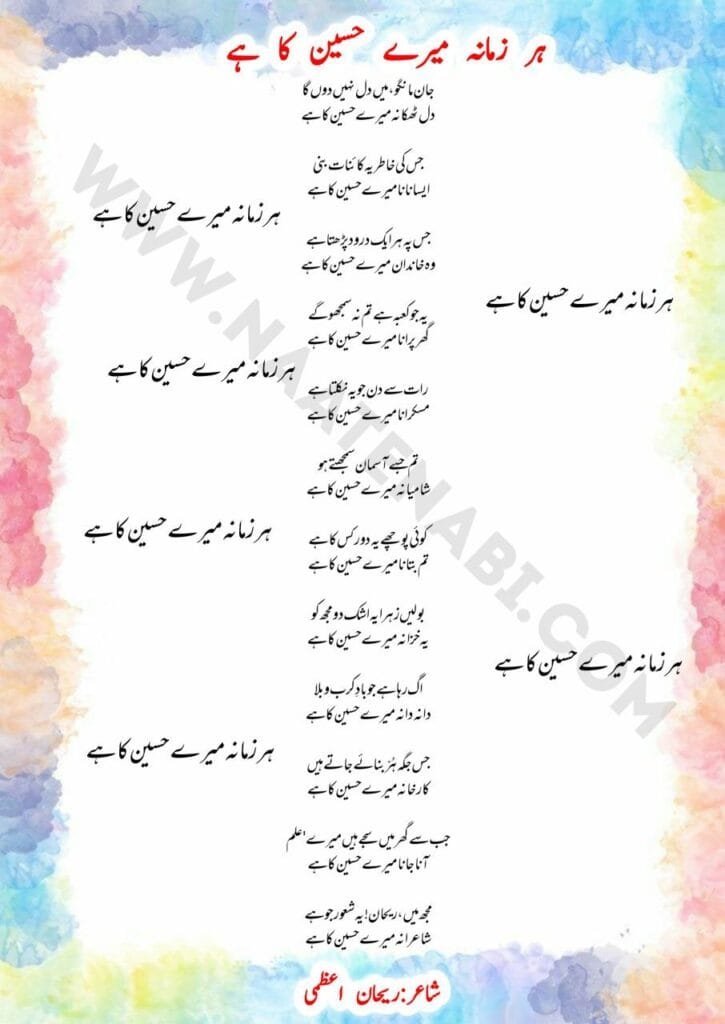 ہر زمانہ میرے حسین کا ہے
جان مانگو، میں دل نہیں دوں گا
دل ٹھکانہ میرے حسین کا ہے
جس کی خاطر یہ کائنات بنی
ایسا نانا میرے حسین کا ہے
ہر زمانہ میرے حسین کا ہے
جس پہ ہر ایک درود پڑھتا ہے
وہ خاندان میرے حسین کا ہے
ہر زمانہ میرے حسین کا ہے
یہ جو کعبہ ہے تم نہ سمجھو گے
گھر پرانا میرے حسین کا ہے
ہر زمانہ میرے حسین کا ہے
رات سے دن جو یہ نکلتا ہے
مسکرانا میرے حسین کا ہے
تم جسے آسمان سمجھتے ہو
شامیانہ میرے حسین کا ہے
ہر زمانہ میرے حسین کا ہے
کوئی پوچھے یہ دور کس کا ہے
تم بتانا میرے حسین کا ہے
بولیں زہرا یہ اشک دو مجھ کو
یہ خزانہ میرے حسین کا ہے
ہر زمانہ میرے حسین کا ہے
اگ رہا ہے جو بادِ کرب و بلا
دانہ دانہ میرے حسین کا ہے
ہر زمانہ میرے حسین کا ہے
جس جگہ حُر بنائے جاتے ہیں
کارخانہ میرے حسین کا ہے
جب سے گھر میں سجے ہیں میرے 'علم
آنا جانا میرے حسین کا ہے
مجھ میں، ریحان! یہ شعور جو ہے
شاعرانہ میرے حسین کا ہے
شاعر: ریحان اعظمی
WWW.NAATENABI.COM